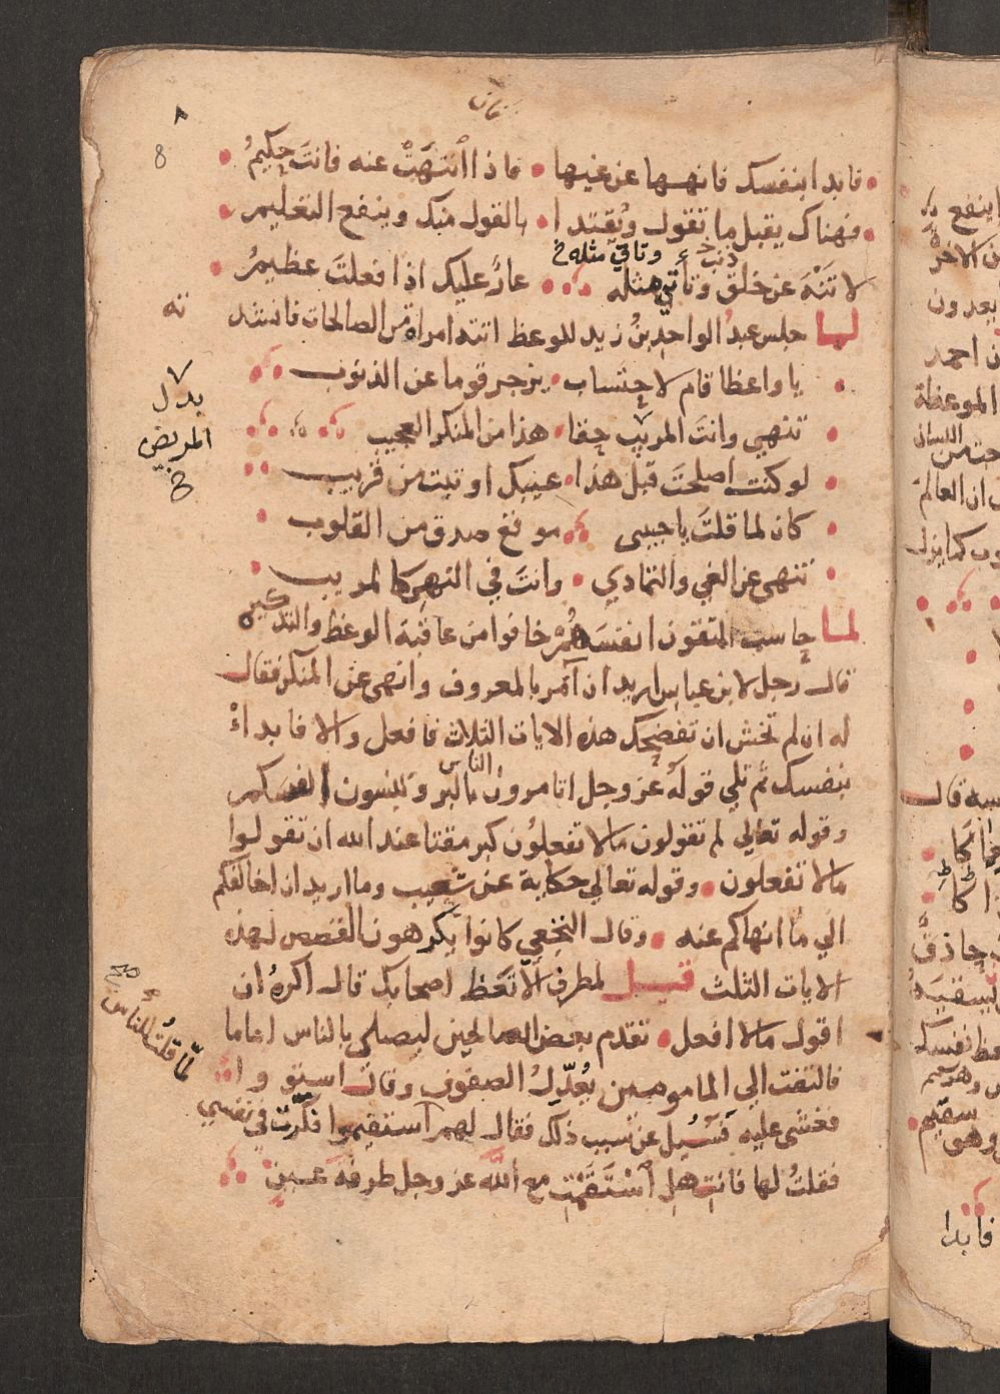 ٨
8
فابدا بنفسك فانهها عن غيها • فاذا انتهت عنه فانت حكيم
فهناك يقبل ما تقول ويقتدا • بالقول منك وينفع التعليم
وتاتي مثله خ
لا تنه عن خلق وتاتي مثله • عار عليك اذا فعلت عظيم
لما جلس عبد الواحد بن زيد للوعظ اتته امراة من الصالحات فانشد
يا واعظا قام لاحتساب • يزجر قوما عن الذنوب
تنهي وانت المريب حقا • هذا من المنكر العجيب
لو كنت اصلحت قبل هذا • عيبك او تبت من قريب
كان لما قلت يا حبيبي موقع صدق من القلوب
تنهى عن الغي والتمادي • وانت في النهي كالمريب
بدل
المريض
خ
لما حاسب المتقون انفسهم خافوا من عاقبة الوعظ والتذكير
قال رجل لابن عباس اريد ان آمر بالمعروف وانهى عن المنكر فقال
له ان لم تخش ان تفضحك هذه الايات الثلاث فافعل والا فابدأ
بنفسك ثم تلي قوله عز وجل اتامرون الناس بالبر وتنسون انفسكم
وقوله تعالي لم تقولون مالا تفعلون كبر مقتا عند الله ان تقولوا
مالا تفعلون • وقوله تعالي حكاية عن شعيب وما اريد ان اخالفكم
الي ما انهاكم عنه • وقال النخعي كانوا يكرهون القصص لهذه
الايات الثلث قيل لمطرف الا تعظ اصحابك قال اكره ان
اقول مالا افعل • تقدم بعض الصالحين ليصلي بالناس اماما
فالتفت الي المامومين يعدل الصفوف وقال استووا
فغشى عليه فسئل عن سبب ذلك فقال لهم استقيموا فكرت في نفسي
فقلت لها فانت هل استقمت مع الله عز وجل طرفة عين
لما قلت للناس
صح